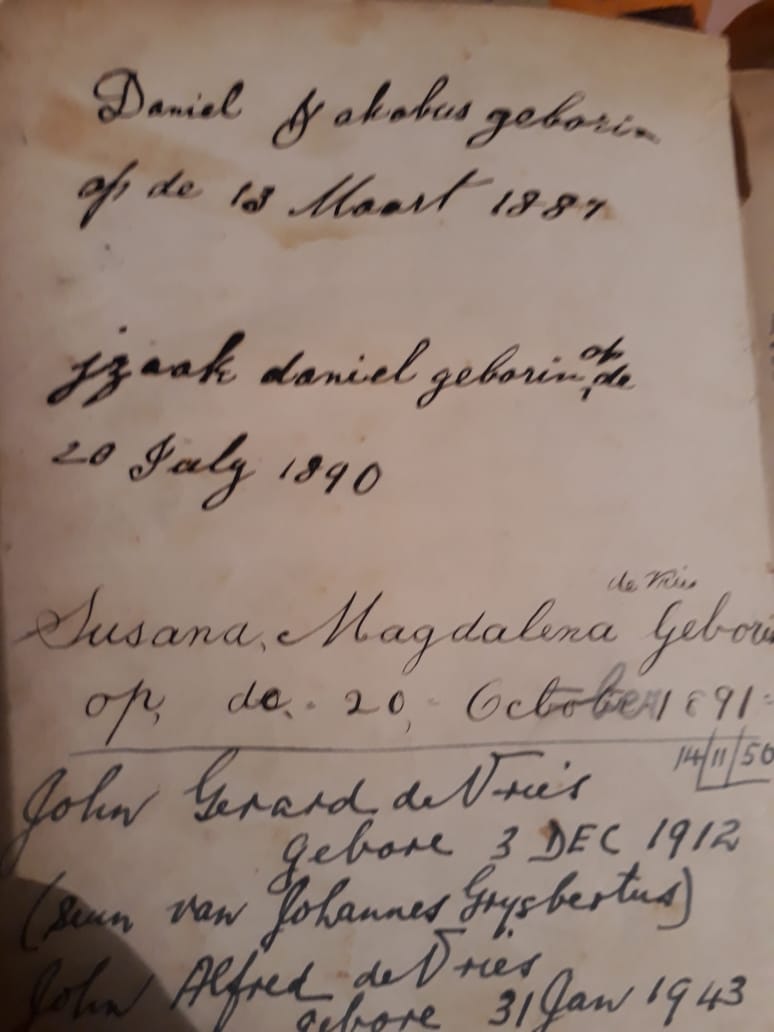 Daniel Jakobus geborin
op de 13 Maart 1887
jzaak daniel geborin op de
20 July 1890
de Vries
Susana, Magdalena Gebori
op, de. - 20, - October 1891 -
14/11/50
John Gerard de Vries
gebore 3 DEC 1912
(seun van Johannes Grysbertus)
John Alfred de Vries
gebore 31 Jan 1943